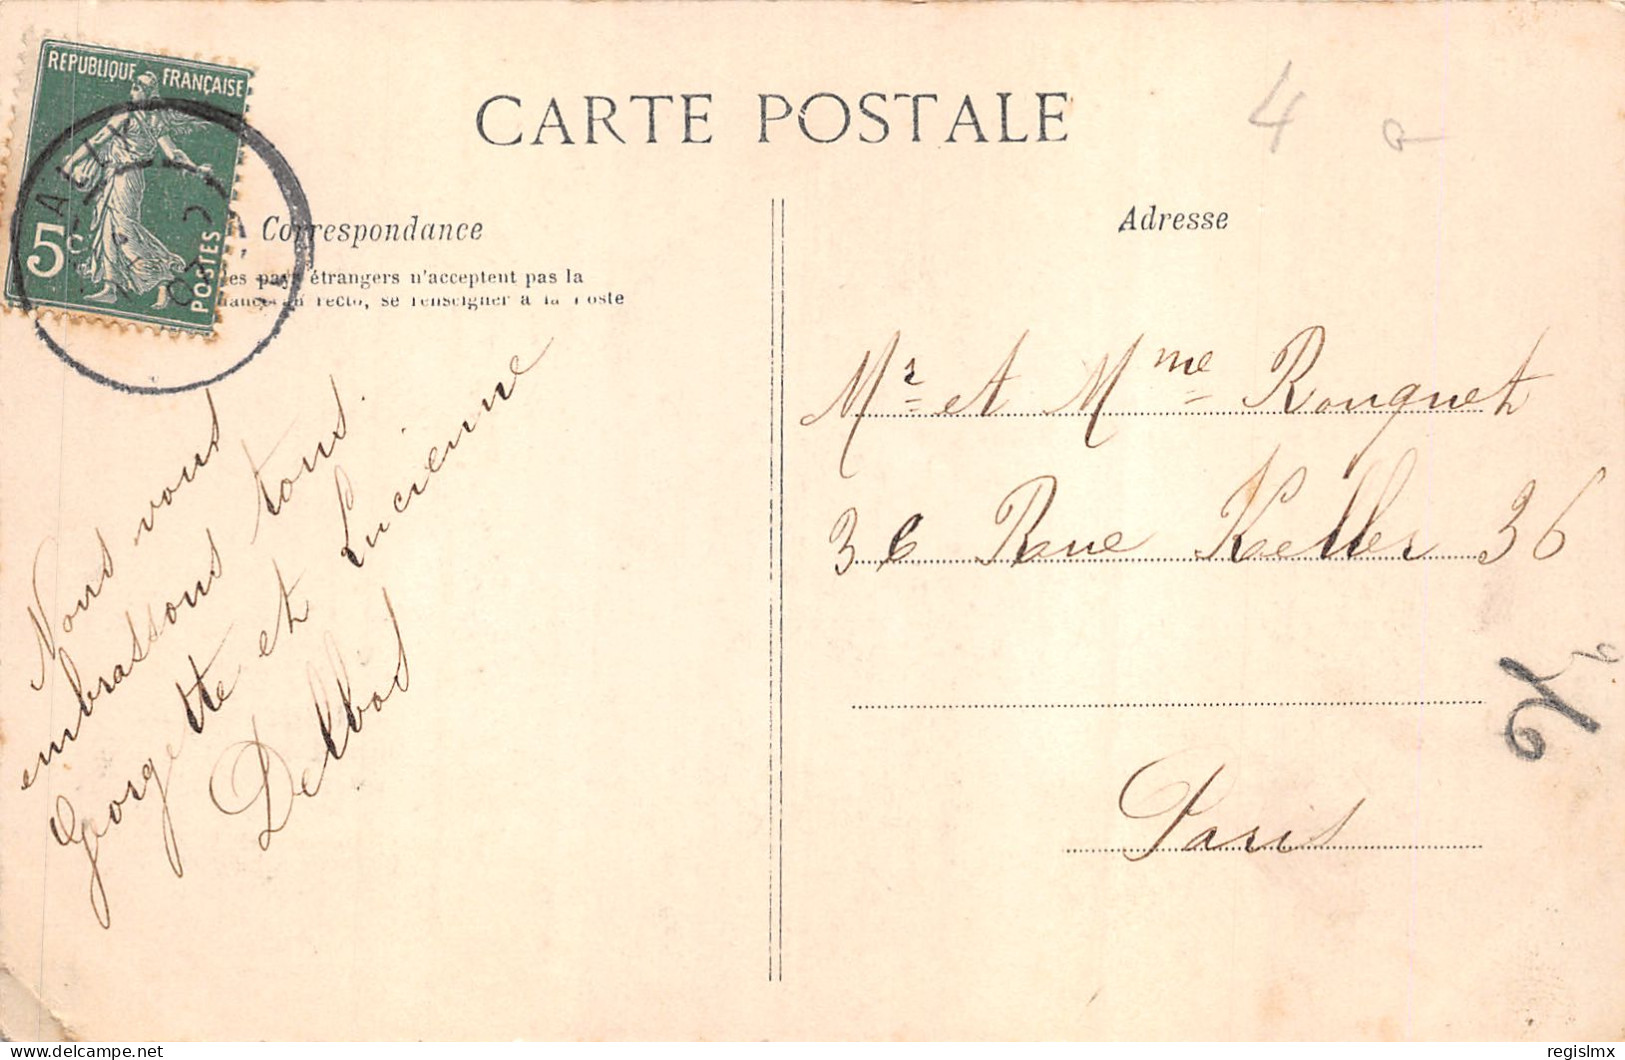 REPUBLIQUE FRANÇAISE
5c
POSTES
CARTE POSTALE
4
Correspondance
Adresse
es pays étrangers n'acceptent pas la
au recto, se renseigner à la Poste
Nous vous
embrassons tous.
Georgette et Lucienne
Delbos
Mr et Mme Rouquet
36 Rue Keller 36
Paris
delcampe.net
regislmx